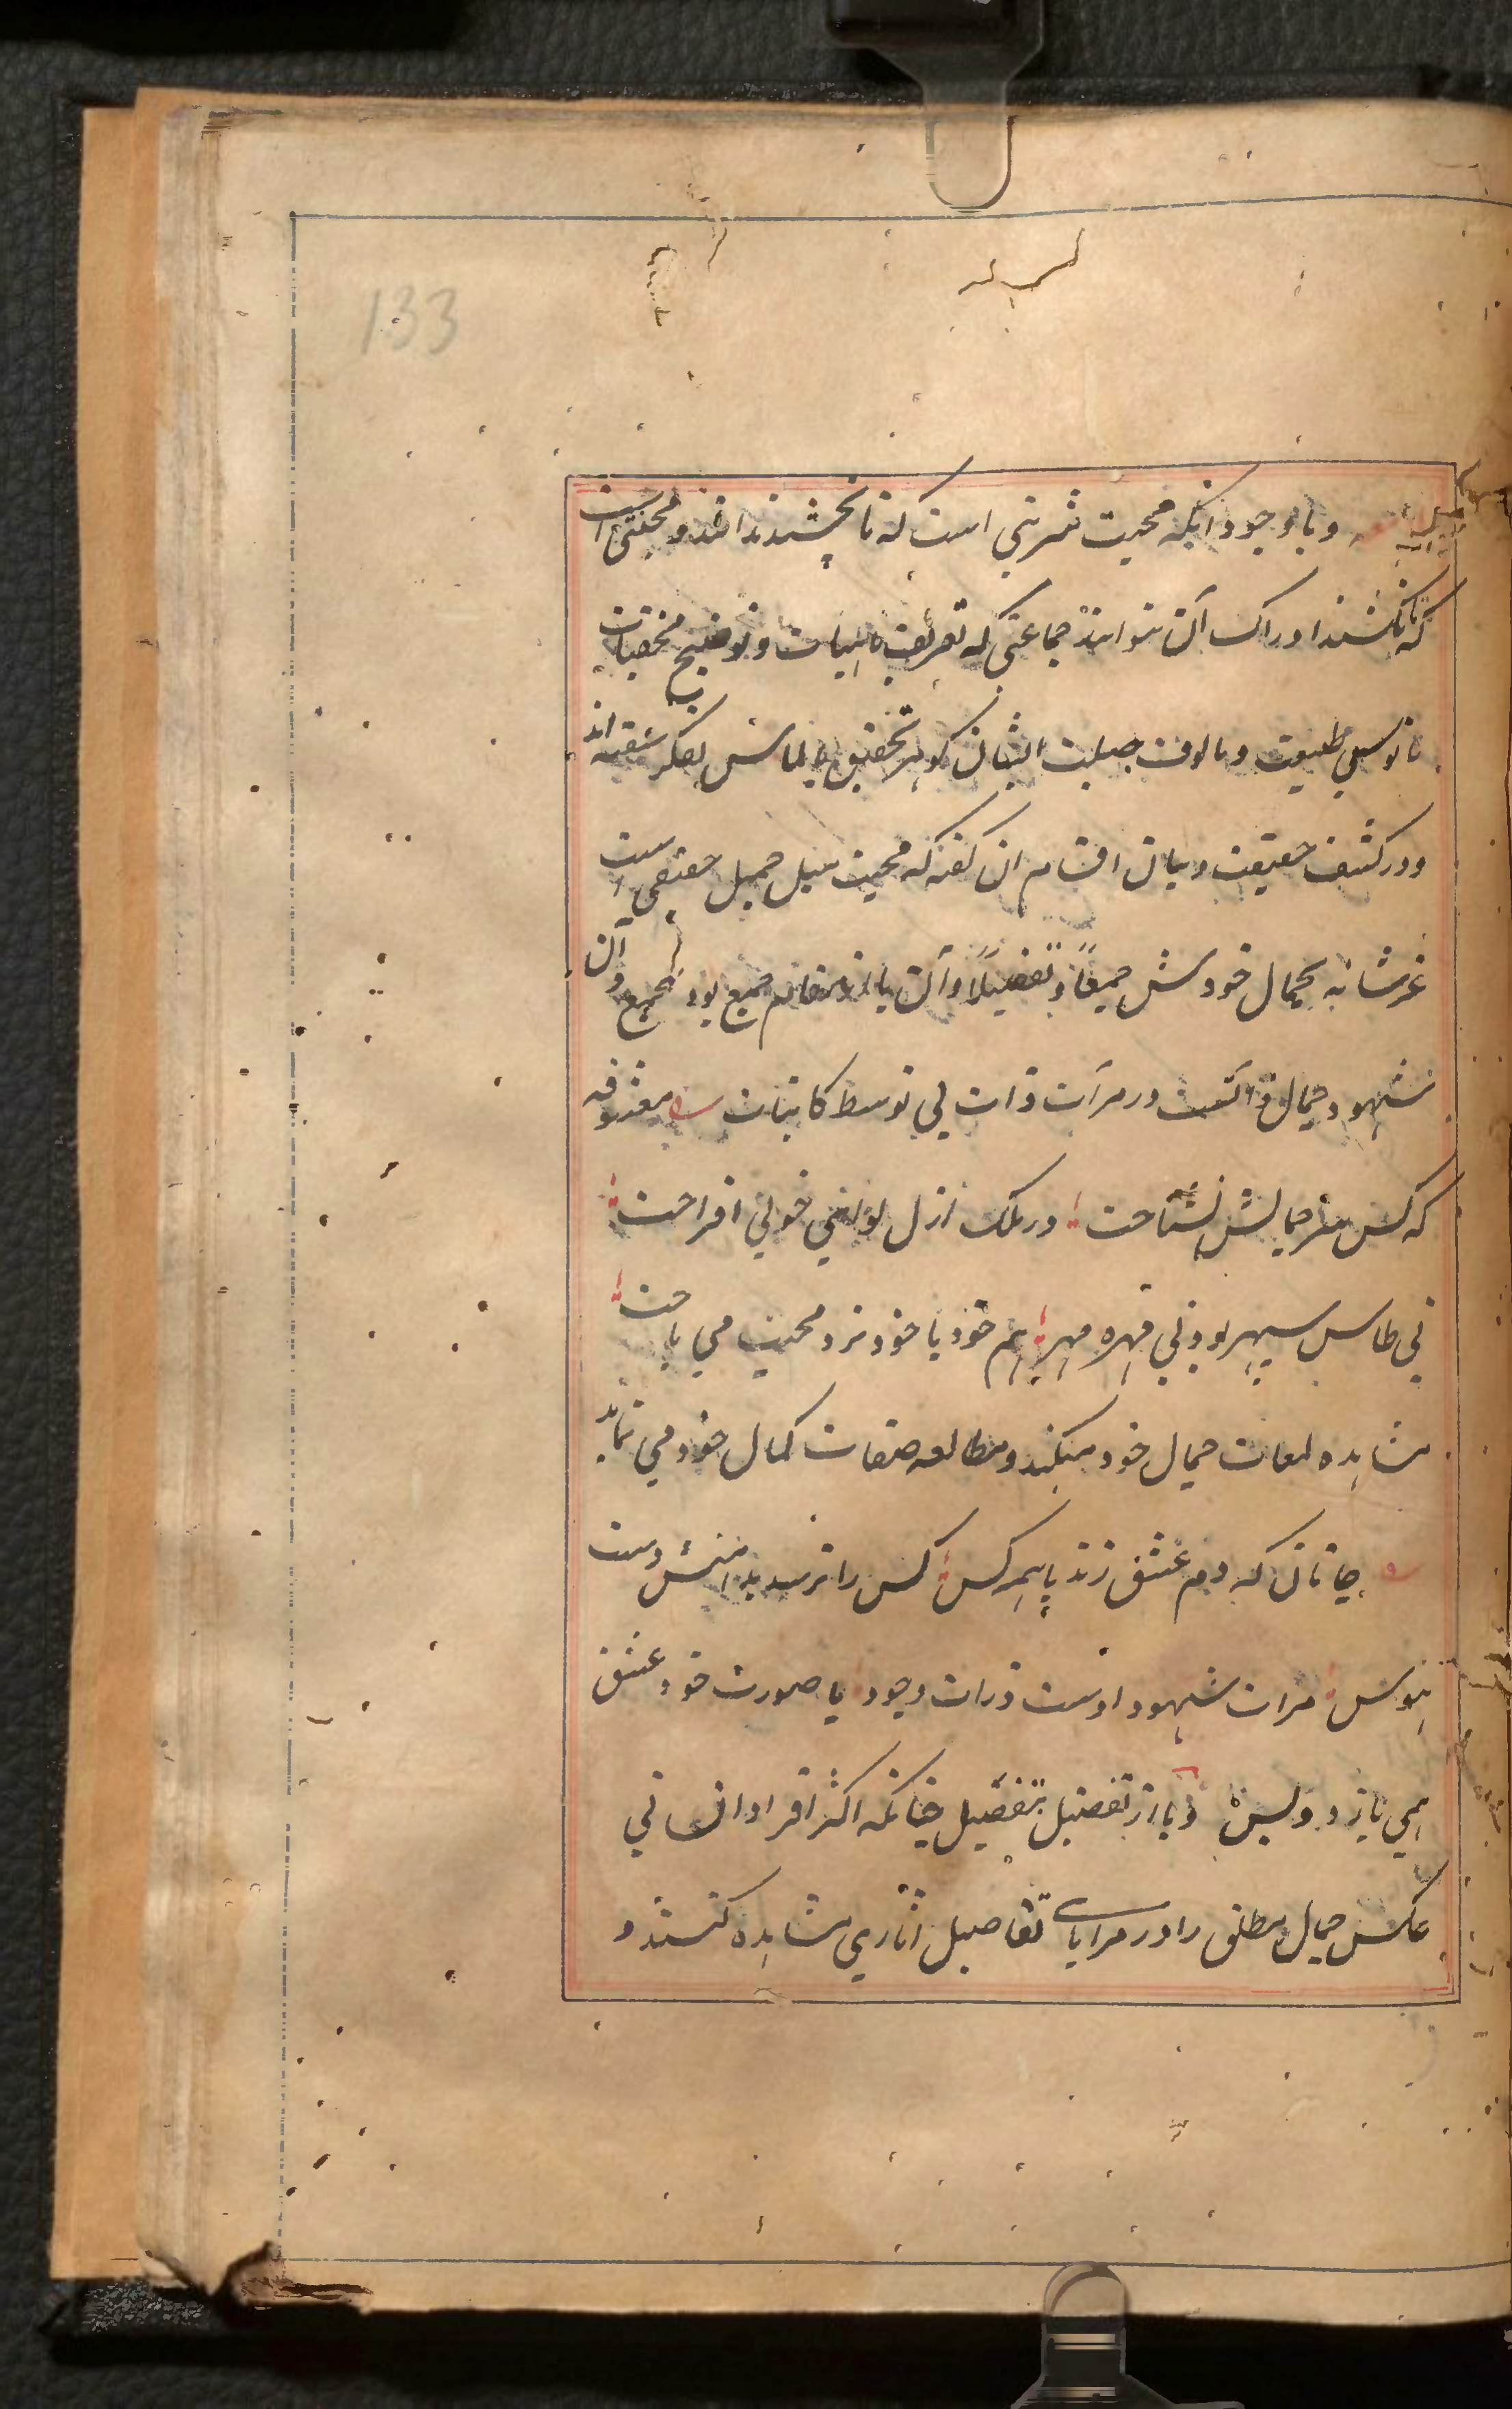 133
و با وجود انکه محبت شربتی است که تا نچشند ندانند و محنتی است
که تا نکشند ادراک آن نتوانند جماعتی که تعریف ماهیات و توضیح مخفیات
مانوس طبیعت و مالوف جبلت ایشان کوهر تحقیق بالماس فکر سفته اند
و در کشف حقیقت و بیان اقسام ان کفته که محبت میل جمیل حقیقی است
عز شانه بجمال خودش جمعا و تفصیلا و آن یا از مقام جمع بود بجمع و آن
شهود جمال ذاتست در مرآت ذات بی توسط کاینات معشوقه
که کس سر جمالش نشناخت در ملک ازل لوای خوبی افراخت
نی طاس سپهر بود نی مهره مهر هم خود با خود نرد محبت می باخت
مشاهده لمعات جمال خود میکند و مطالعه صفات کمال خود می نماید
جانان که دم عشق زند با همه کس کس را نرسد بدامنش دست
هوس مرات شهود اوست ذرات وجود با صورت خود عشق
همی بازد و بس و یا از تفصیل بتفصیل چنانکه اکثر افراد انسانی
عکس جمال مطلق را در مرایای تفاصیل اثاری مشاهده کنند و